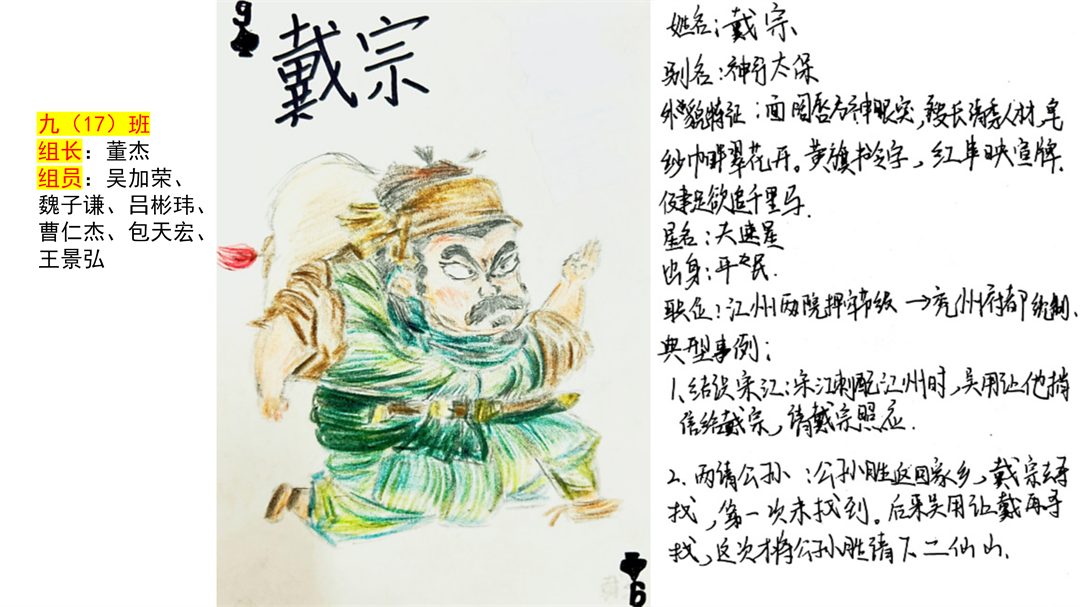 九（17）班
组长：董杰
组员：吴加荣、
魏子谦、吕彬玮、
曹仁杰、包天宏、
王景弘
9
戴宗
9
姓名：戴宗
别名：神行太保
外貌特征：面阔唇方神眼突，瘦长清秀人材，皂
纱巾畔翠花开。黄旗书令字，红串映宣牌.
健足欲追千里马.
星名：天速星
出身：平民.
职位：江州两院押牢节级→兖州府都统制.
典型事例：
1.结识宋江：宋江刺配江州时，吴用让他捎
信给戴宗，请戴宗照应.
2.两请公孙：公孙胜返回家乡，戴宗去寻
找，第一次未找到。后来吴用让戴再寻
找，这次才将公孙胜请下二仙山.